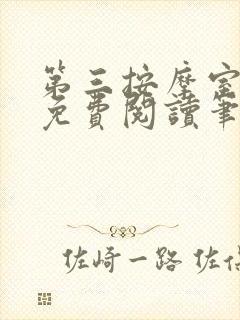 第三按摩室
免費閱讀筆
佐崎一路 佐